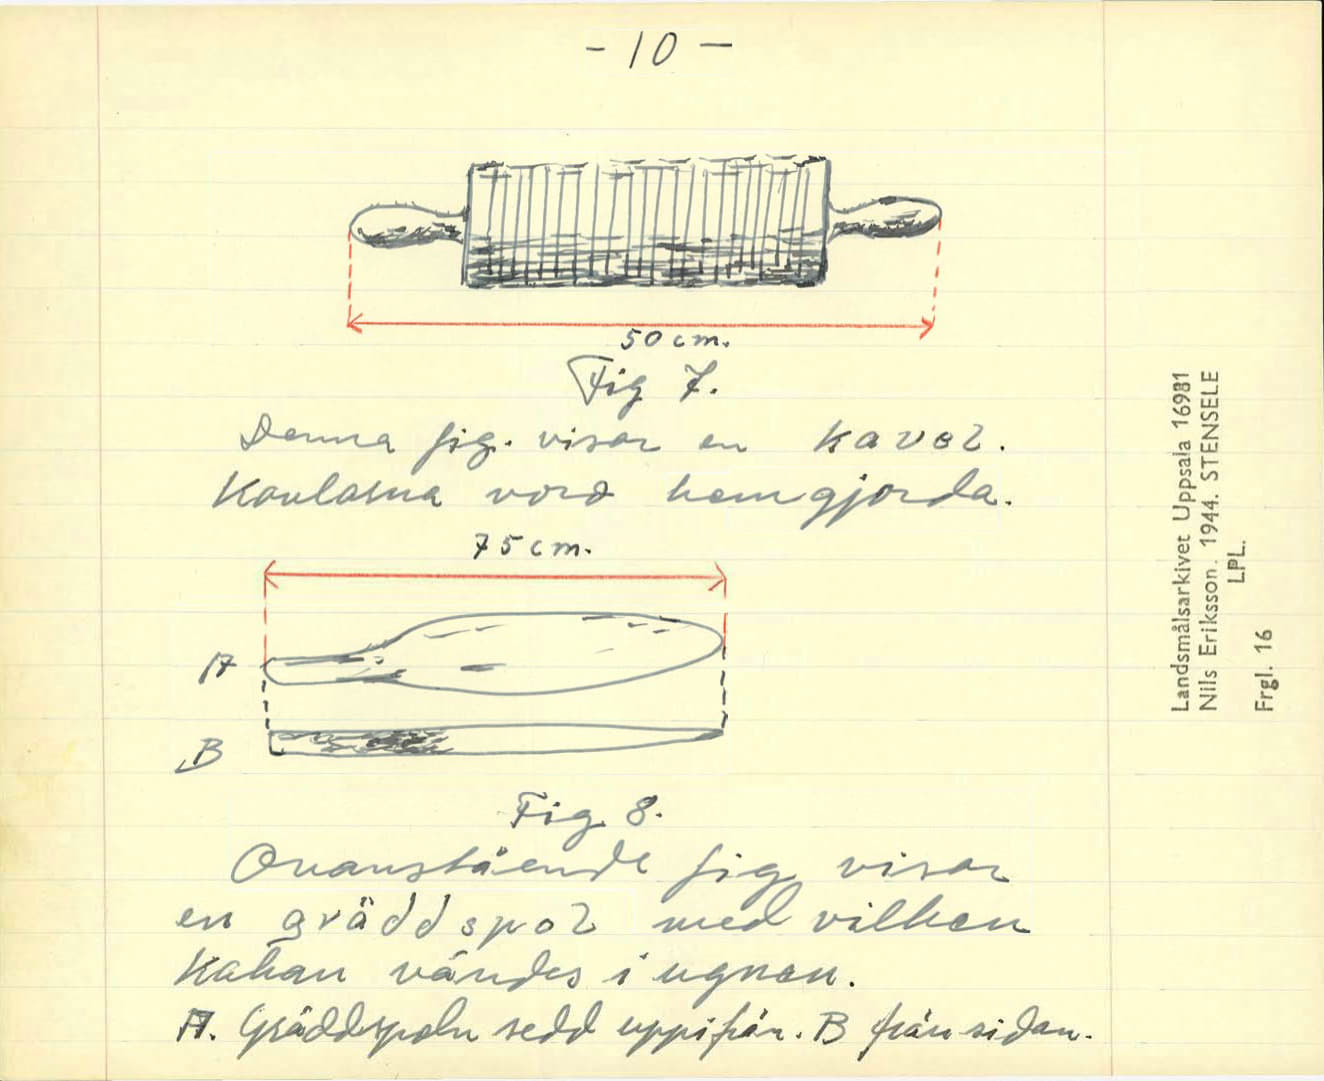 - 10 -
50 cm.
Fig 7.
Denna fig. visar en kavel.
Kavlarna voro hemgjorda.
75 cm.
A
B
Fig 8.
Ovanstående fig visar
en gräddspol med vilken
Kakan vändes i ugnen.
A. Gräddspoln sedd uppifrån. B från sidan.
Landsmålsarkivet Uppsala 16981
Nils Eriksson. 1944. STENSELE
LPL.
Frgl. 16